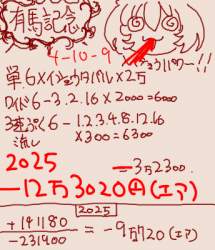 有馬記念
4-10-9
単6×イショウタバル×2万
ワイド6-3.2.16×2000=6000
3連ぷく6-1.2.3.4.8.12.16
流し ×300=6300
2025 ー3万2300.
ー12万3020円(エア)
2025
+141180
-231400 = -9万720(エア)